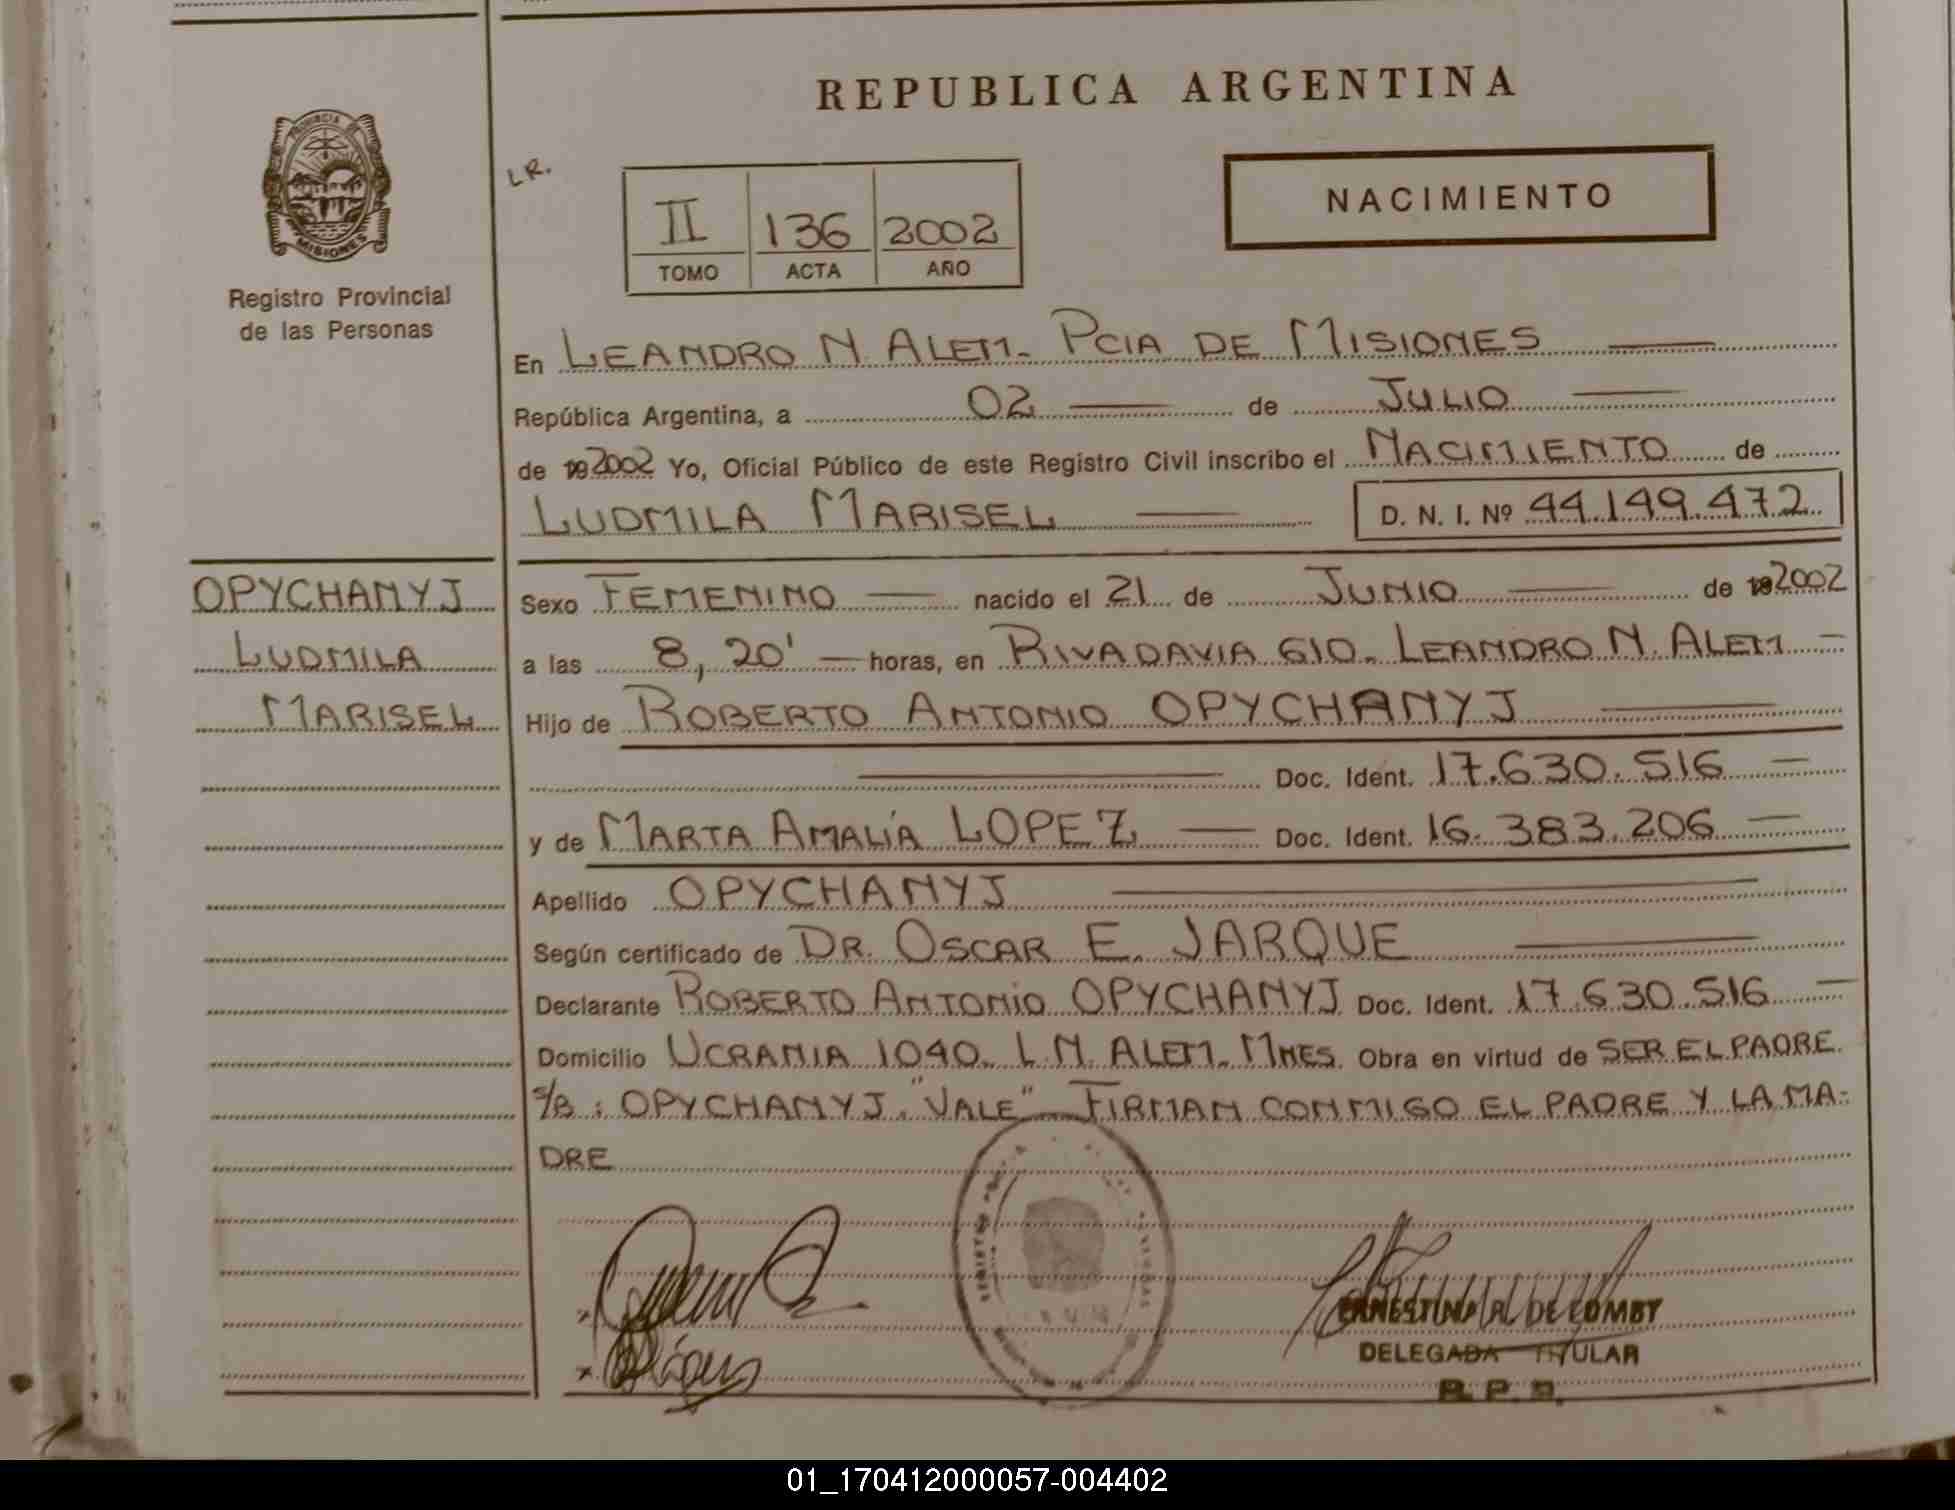 REPUBLICA ARGENTINA
PROVINCIA DE
MISIONES
Registro Provincial
de las Personas
LR.
NACIMIENTO
II 136 2002
TOMO ACTA AÑO
En LEANDRO N. ALEM. PCIA DE MISIONES
República Argentina, a 02 de JULIO
de 192002 Yo, Oficial Público de este Registro Civil inscribo el NACIMIENTO de
LUDMILA MARISEL D. N. I. Nº 44.149.472
OPYCHANYJ
LUDMILA
MARISEL
Sexo FEMENINO nacido el 21 de JUNIO de 192002
a las 8,20' horas, en RIVADAVIA 610. LEANDRO N. ALEM
Hijo de ROBERTO ANTONIO OPYCHANYJ
Doc. Ident. 17.630.516
y de MARTA AMALÍA LOPEZ Doc. Ident. 16.383.206
Apellido OPYCHANYJ
Según certificado de DR. OSCAR E. JARQUE
Declarante ROBERTO ANTONIO OPYCHANYJ Doc. Ident. 17.630.516
Domicilio UCRANIA 1040. L.N. ALEM. MNES. Obra en virtud de SER EL PADRE.
S/B: OPYCHANYJ. "VALE" FIRMAN CONMIGO EL PADRE Y LA MA-
DRE
ERNESTINA R. DE LOMBY
DELEGADA TITULAR
R. P. P.
01_170412000057-004402